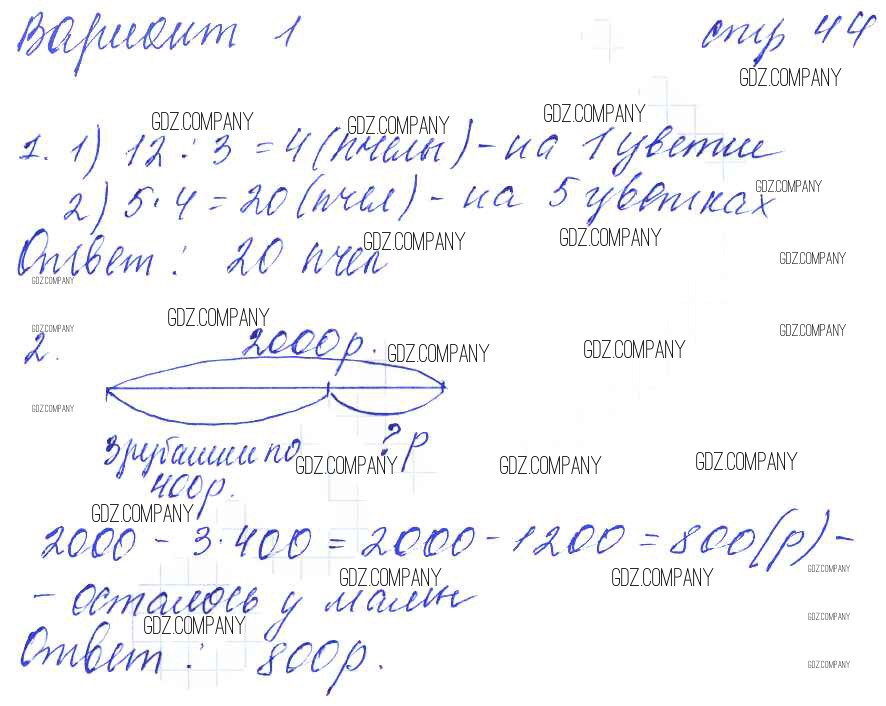 Вариант 1 стр 44
GDZ.COMPANY
GDZ.COMPANY GDZ.COMPANY GDZ.COMPANY
1. 1) 12 : 3 = 4 (пчелы) - на 1 цветке
GDZ.COMPANY
2) 5 · 4 = 20 (пчел) - на 5 цветках
GDZ.COMPANY GDZ.COMPANY
Ответ : 20 пчел
GDZ.COMPANY GDZ.COMPANY
GDZ.COMPANY GDZ.COMPANY GDZ.COMPANY
2. 2000р. GDZ.COMPANY GDZ.COMPANY
GDZ.COMPANY
3 рубашки по ? р
GDZ.COMPANY GDZ.COMPANY GDZ.COMPANY
400р.
GDZ.COMPANY
2000 - 3 · 400 = 2000 - 1200 = 800 (р) -
GDZ.COMPANY GDZ.COMPANY GDZ.COMPANY
- осталось у мамы
GDZ.COMPANY GDZ.COMPANY
Ответ : 800р.
GDZ.COMPANY